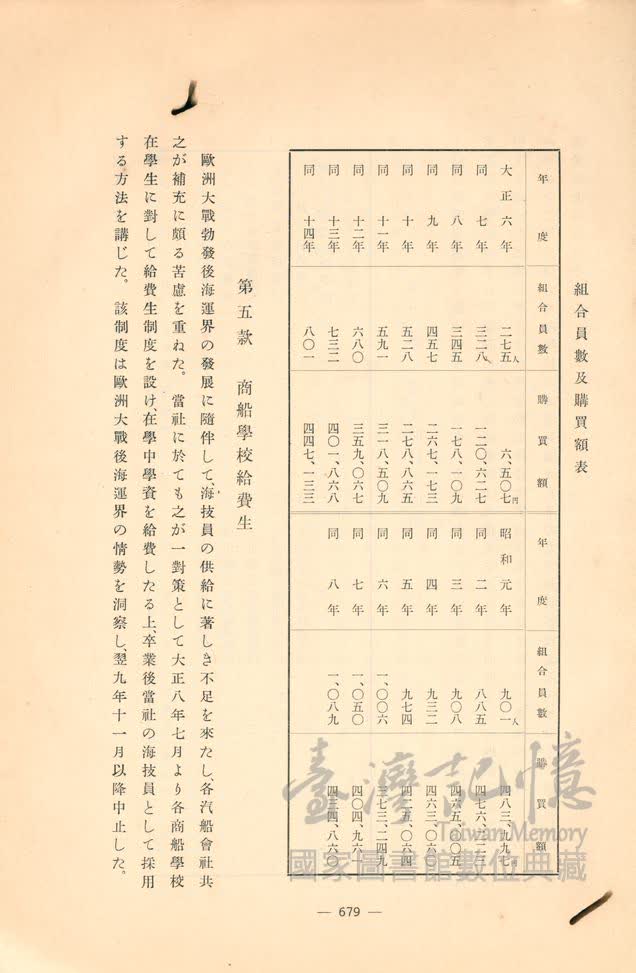 組合員數及購買額表
年度 組合員數 購買額 年度 組合員數 購買額
大正六年 二七五人 六、五〇七円 昭和元年 九〇一人 四八三、九九七円
同七年 三二八 一二〇、六二七 同二年 八八五
同八年 三四五 一七八、一〇九 同三年 九〇八
同九年 四五七 二六七、一七三 同四年 九三二 四六三、〇六〇
同十年 五二八 二七八、八六五 同五年 九七四 四二五、〇六四
同十一年 五九一 三一八、五〇九 同六年 一、〇〇六 三七三、二四九
同十二年 六八〇 三五九、〇六七 同七年 一、〇五〇
同十三年 七三二 四〇一、八六八 同八年 一、〇八九 四三四、八六〇
同十四年 八〇一 四四七、一三三
第五款 商船學校給費生
歐洲大戰勃發後海運界の發展に隨伴して、海技員の供給に著しき不足を來たし、各汽船會社共
之が補充に頗る苦慮を重ねた。當社に於ても之が一對策として大正八年七月より各商船學校
在學生に對して給費生制度を設け、在學中學資を給費したる上、卒業後當社の海技員として採用
する方法を講じた。該制度は歐洲大戰後海運界の情勢を洞察し、翌九年十一月以降中止した。
— 679 —
臺灣記憶
Taiwan Memory
國家圖書館數位典藏